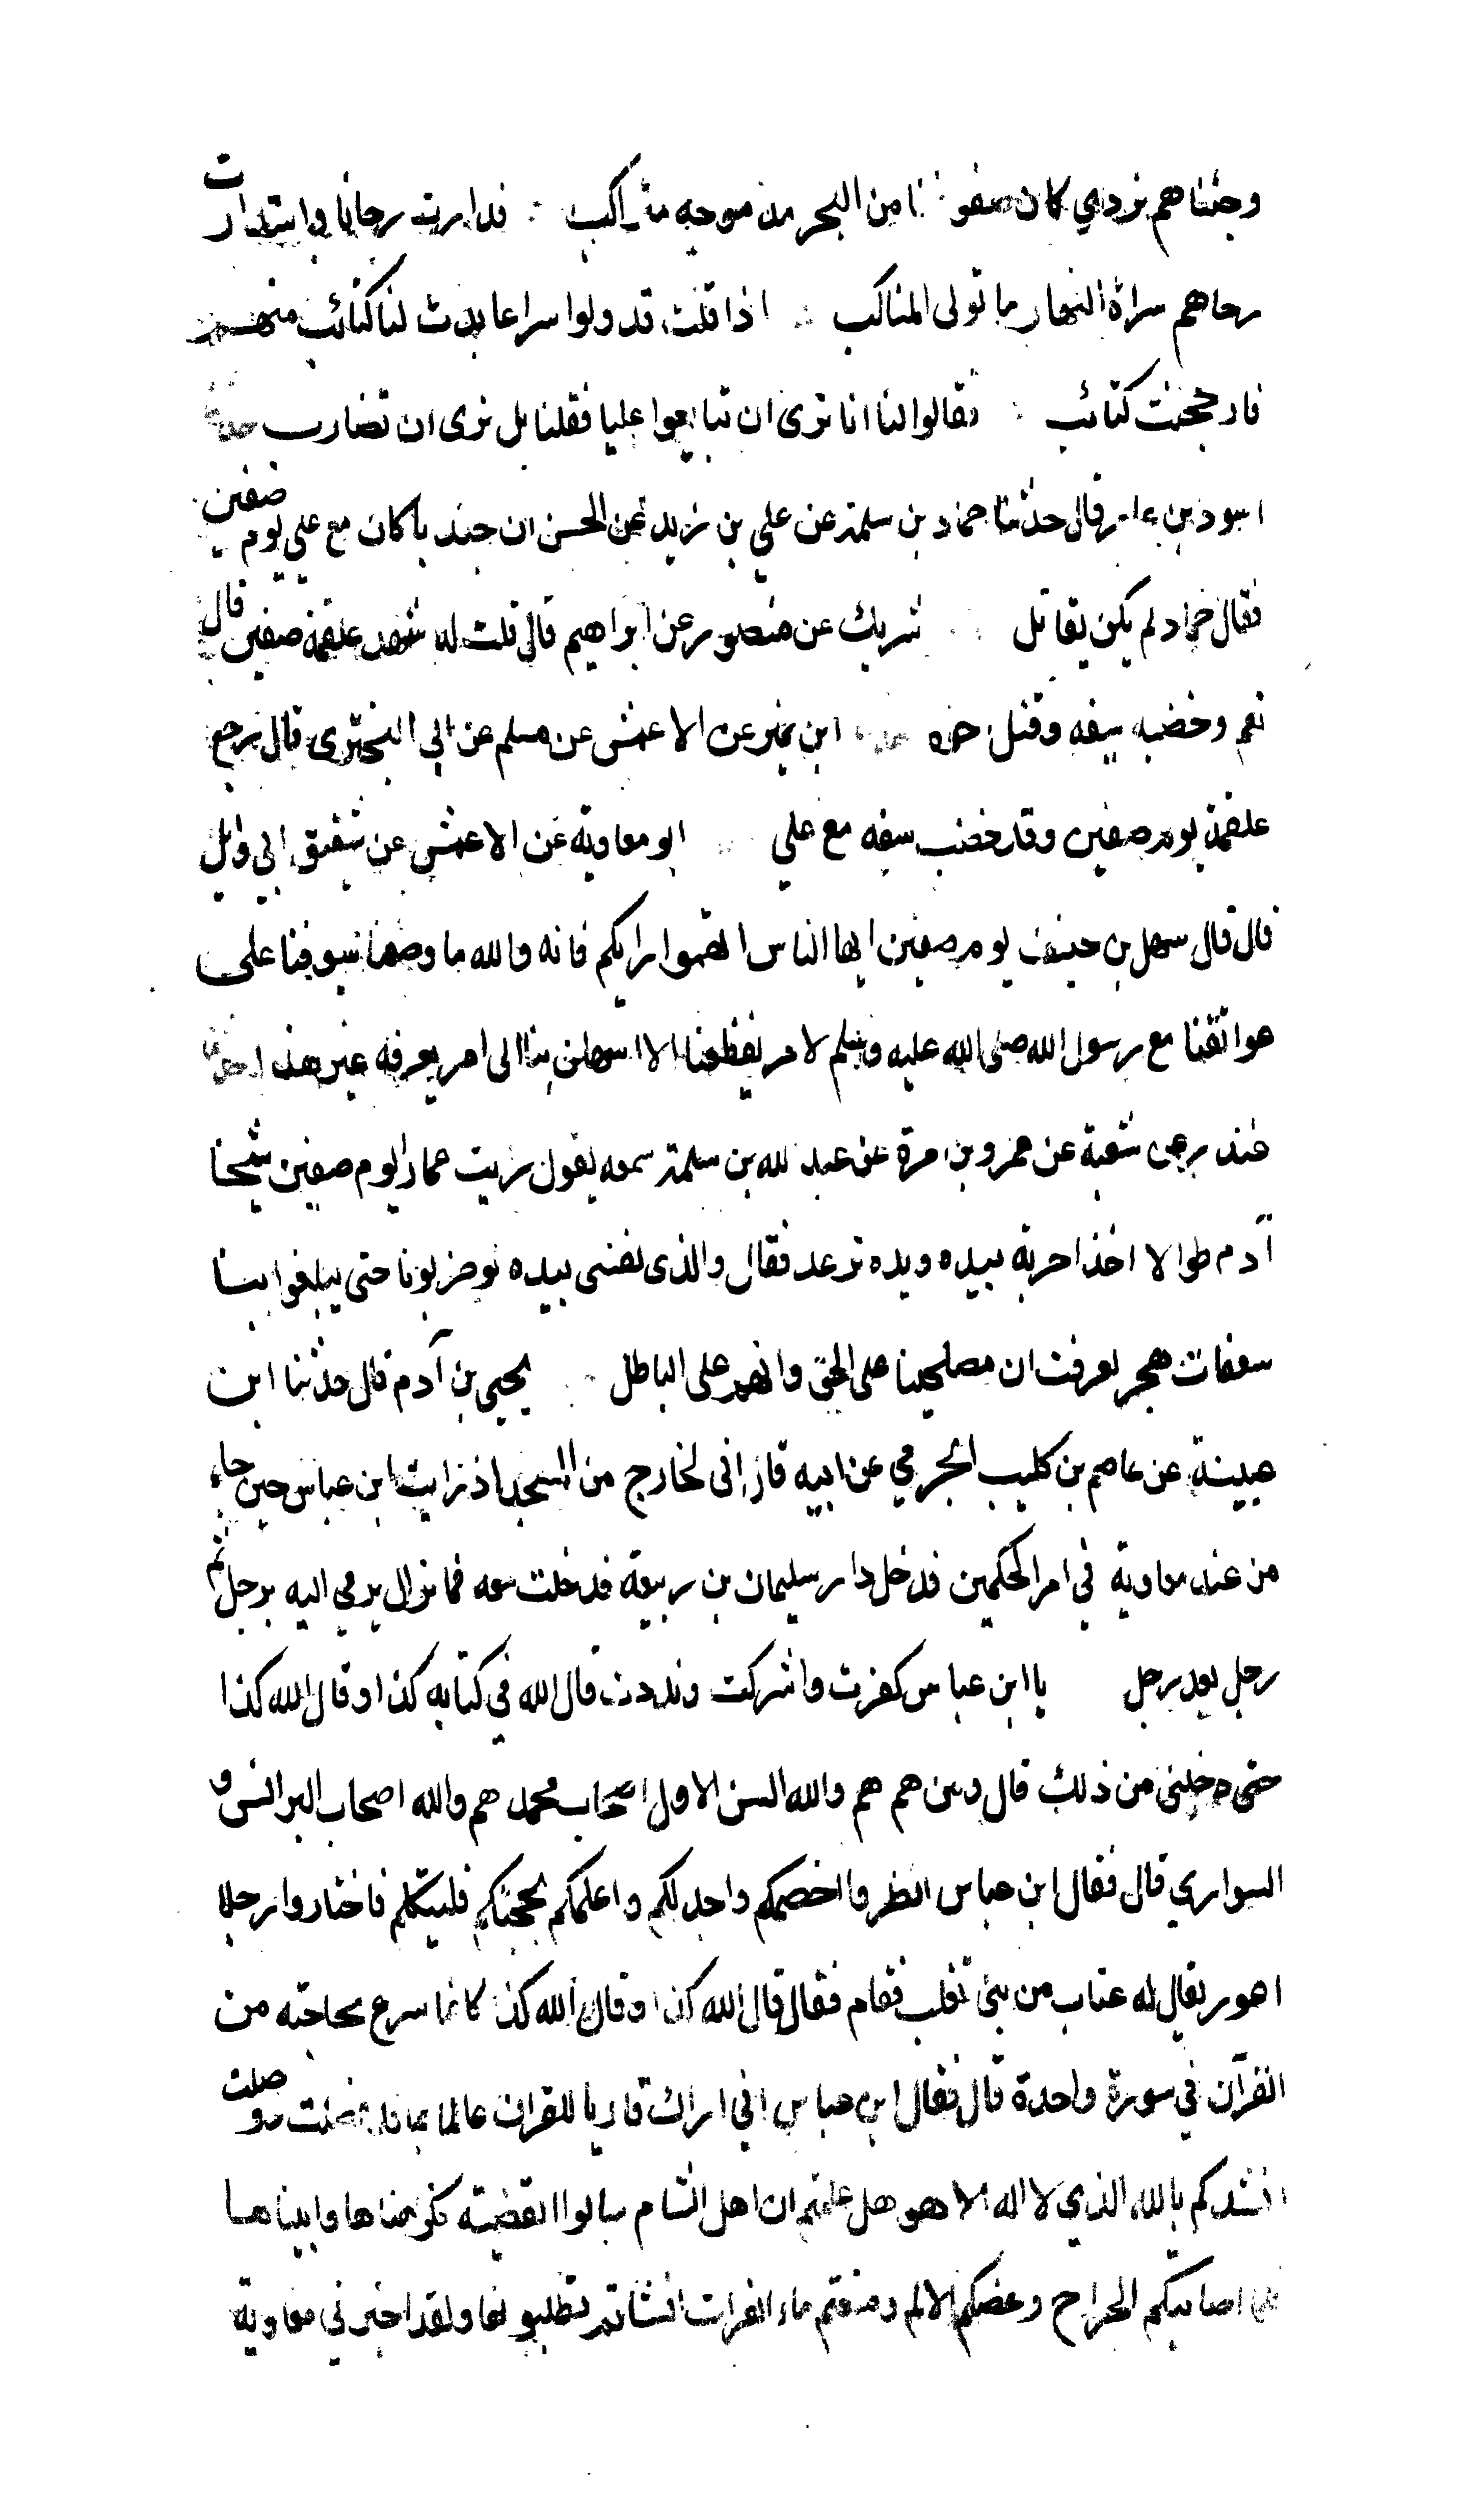 وجئناهم نردي كان صفوفنا من البحر مد موجه متراكب ∴ فدارت رحانا واستدارت
رحاهم سراة النهار ما تولى المناكب ∴ اذا قلت قد ولوا سراعا بدت لنا كتائب منهم
فارجحنت كتائب ∴ فقالوا لنا انا نرى ان تبايعوا عليا فقلنا بل نرى ان تضارب حدثنا
اسود بن عامر قال حدثنا حماد بن سلمة عن علي بن زيد عن الحسن ان جندبا كان مع علي يوم صفين
فقال حماد لم يكن يقاتل شريك عن منصور عن ابراهيم قال قلت له شهد علقمة صفين قال
نعم وخضب سيفه وقتل ابن نمير عن الاعمش عن مسلم عن ابي البختري قال رجع
علقمة يوم صفين وقد خضب سيفه مع علي ابو معاوية عن الاعمش عن شقيق ابي وايل
قال قال سهل بن حنيف يوم صفين ايها الناس اتهموا رايكم فانه والله ما وضعنا سيوفنا على
عواتقنا مع رسول الله صلى الله عليه وسلم لامر يفظعنا الا اسهلن بنا الى امر يعرفه غير هذا حدثنا
غندر عن شعبة عن عمرو بن مرة عن عبد الله بن سلمة سمعه يقول رايت عمار يوم صفين شيخا
آدم طوالا اخذ حربة بيده ويده ترعد فقال والذي نفسي بيده لو ضربونا حتى يبلغوا بنا
سعفات هجر لعرفت ان مصلحينا على الحق وانهم على الباطل يحيى بن آدم قال حدثنا ابن
عيينة عن عاصم بن كليب الجرمي عن ابيه قال اني لخارج من المسجد اذ رايت ابن عباس حين جاء
من عند معاوية في امر الحكمين فدخل دار سليمان بن ربيعة فدخلت معه فما زال يرمي اليه برجل ثم
رجل بعد رجل يا ابن عباس كفرت واشركت ونددت قال الله في كتابه كذا وقال الله كذا
حتى دخلني من ذلك قال ومن هم هم والله السن الاول اصحاب محمد هم والله اصحاب البرانس و
السواري قال فقال ابن عباس انظروا اخصمكم واجدلكم واعلمكم بحجتكم فليتكلم فاختاروا رجلا
اعور يقال له عتاب من بني تغلب فقام فقال قال الله كذا وقال الله كذا كانما ينزع بحاجته من
القرآن في سورة واحدة قال فقال ابن عباس اني اراك قاريا للقران عالما بما قد فصلت ووصلت
انشدكم بالله الذي لا اله الا هو هل علمتم ان اهل الشام سالوا القضية فكرهناها وابيناها
فلما اصابتكم الجراح وعضكم الالم ومنعتم ماء الفرات انشاتم تطلبونها ولقد اخبرني معاوية